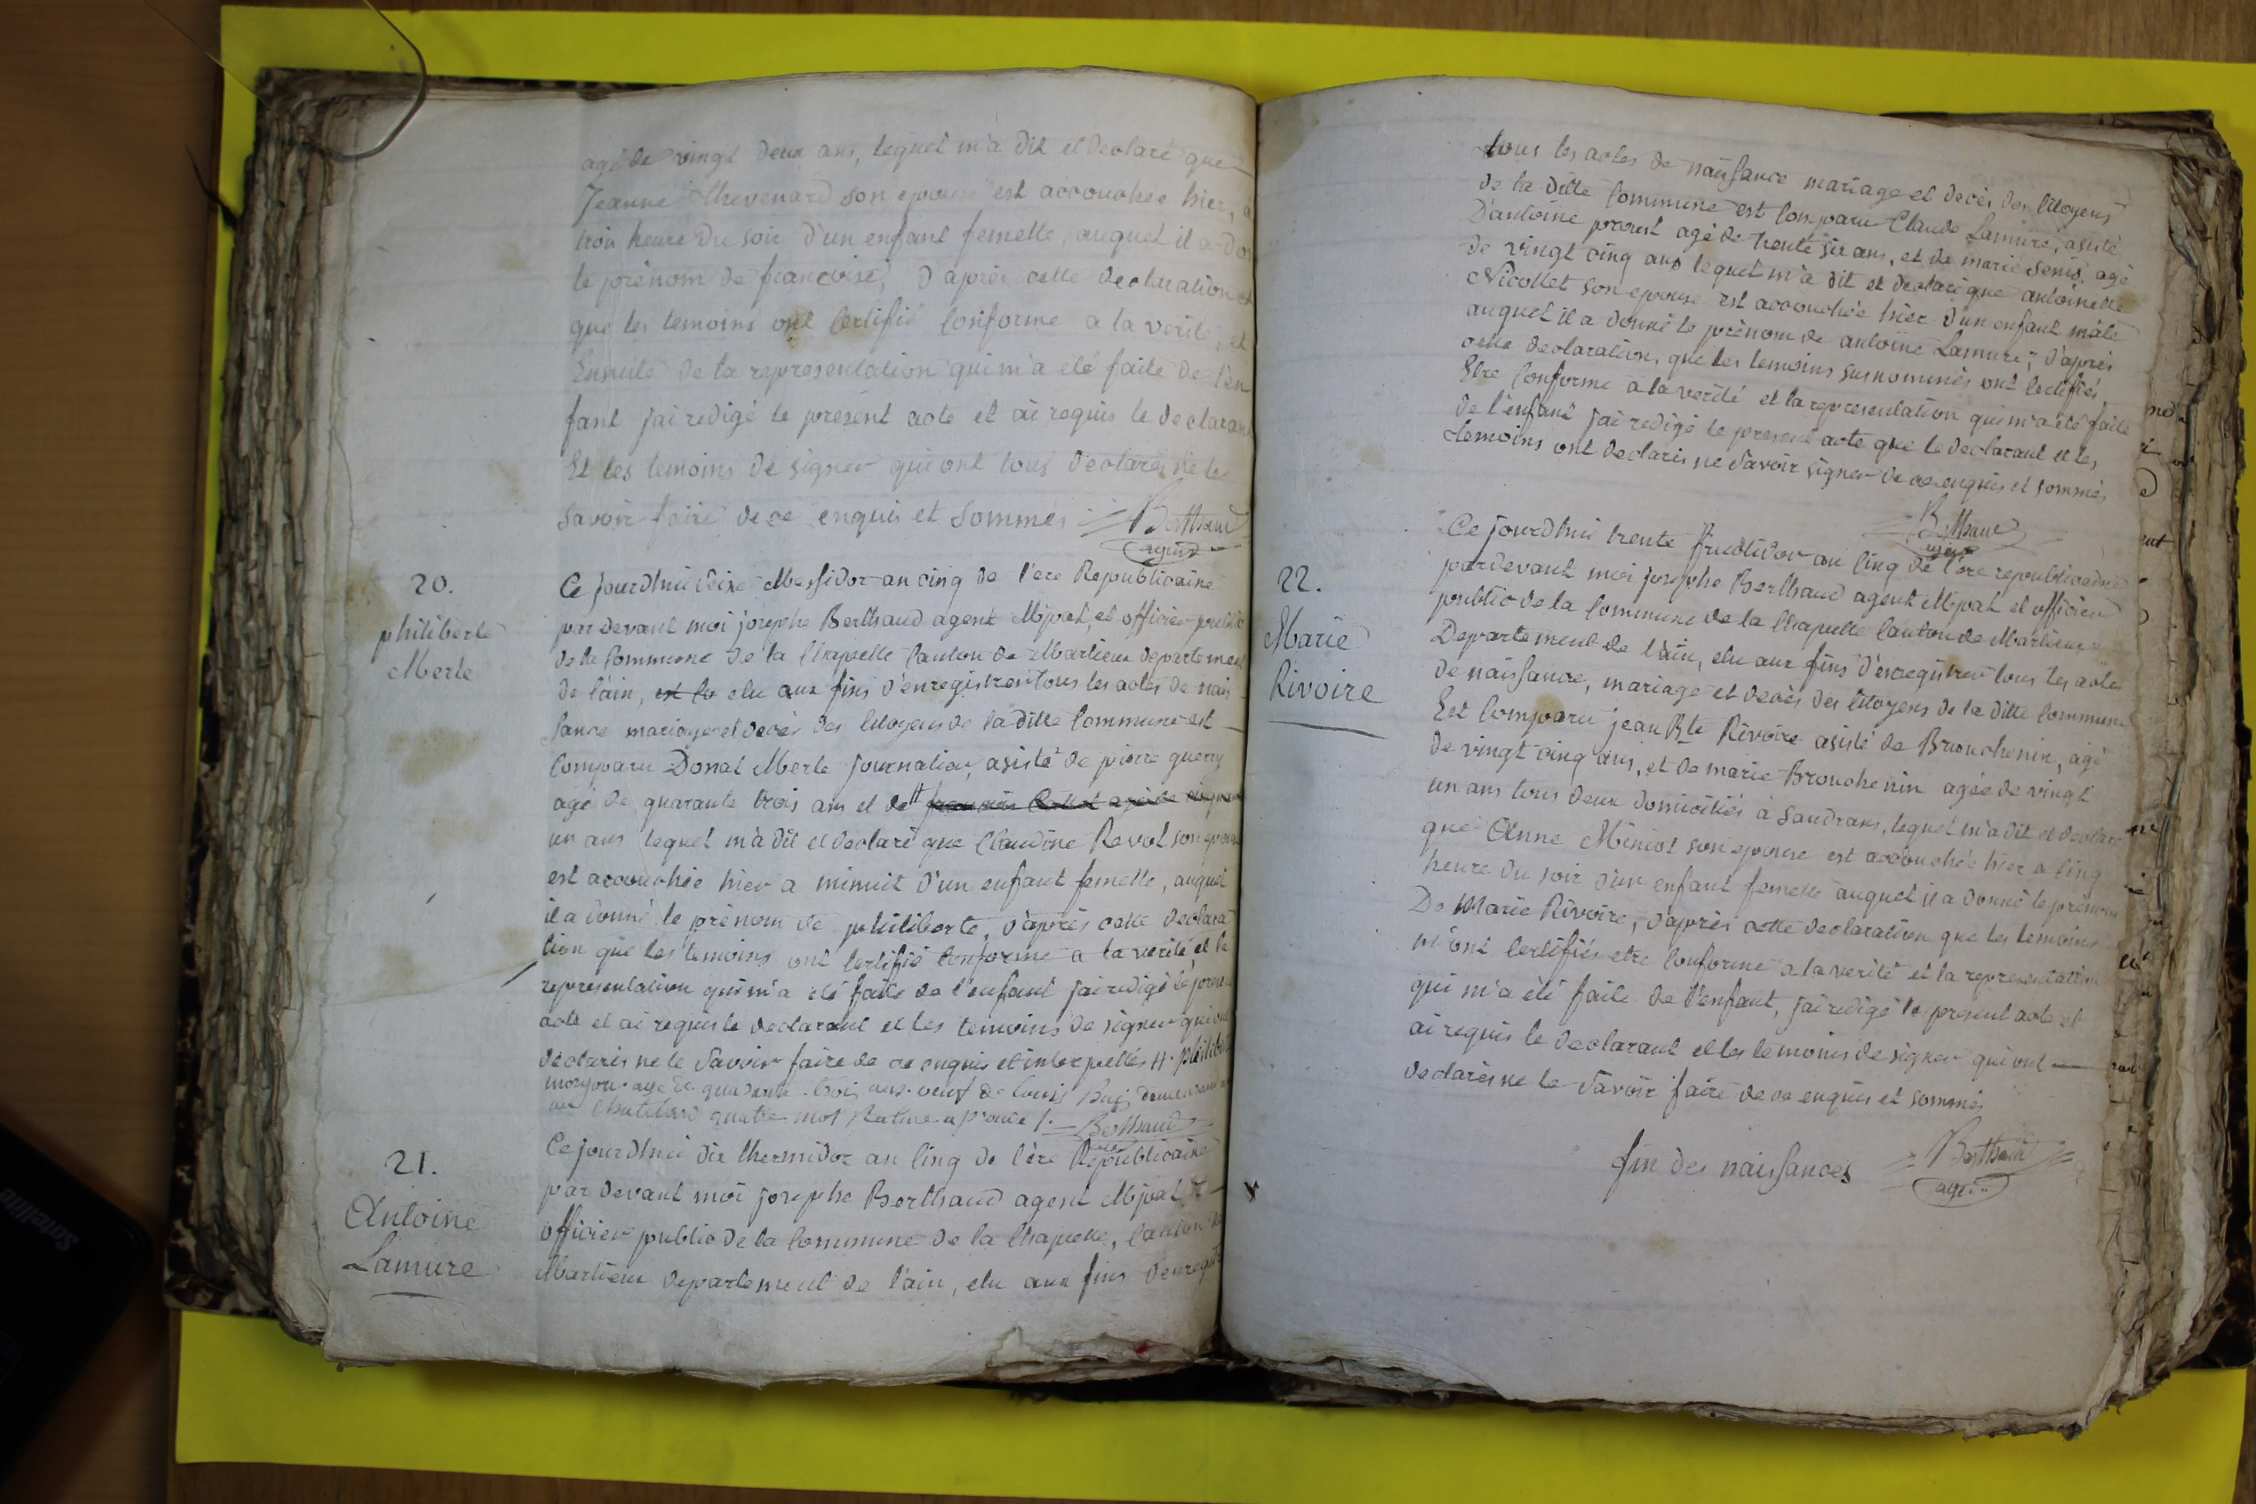 agé de vingt deux ans, lequel m'a dit et declaré que
Jeanne Thevenard son epouse est accouchée hier, a
trois heure du soir d'un enfant femelle, auquel il a do
le prénom de francoise, d'après cette declaration et
que les temoins ont Certifié Conforme a la verité, et
Ensuite de la representation qui m'a été faite de l'en
fant jai redigé le présent acte et ai requis le declarant
Et les temoins de signer qui ont tous declarés ne le
savoir faire de ce enquis et sommés Berthaud
agent
20.
philiberte
Merle
Ce jourdhui seize Messidor an cinq de l'ere Republicaine
par devant moi josephe Berthaud agent Mpal, et officier public
de la Commune de la Chapelle Canton de Marlieux departement
de l'ain, est Co elu aux fins d'enregistrer tous les actes de nais
sance mariage et decès des Citoyens de la ditte Commune est
Comparu Donat Merle journalier, asisté de pierre guerry
agé de quarante trois ans et de
un ans lequel m'a dit et declaré que Claudine Revol son epouse
est accouchée hier a minuit d'un enfant femelle, auquel
il a donné le prénom de philiberte, d'après cette declara
tion que les temoins ont Certifié Conforme a la verité et la
representation qui m'a été faite de l'enfant jai redigé le
acte et ai requis le declarant et les temoins de signer qui ont
declarés ne le savoir faire de ce enquis et interpellés
agé de quarante trois ans veuf de Louis
quatre mot Berthaud
21.
Antoine
Lamure
Ce jourdhui dix thermidor an Cinq de l'ère Republicaine
par devant moi josephe Berthaud agent Mpal et
officier public de la Commune de la Chapelle, Canton de
Marlieux departement de l'ain, elu aux fins denregist
tous les actes de naissance mariage et decès des Citoyens
de la ditte Commune est Comparu Claude Lamure, asisté
D'antoine agé de trente six ans, et de marie denis, agé
de vingt cinq ans lequel m'a dit et declaré que antoinette
Nicollet son epouse est accouchée hier d'un enfant mâle
auquel il a donné le prénom de antoine Lamure, d'après
cette declaration, que les temoins susnommés ont Certifiés
Etre Conforme a la verité et la representation qui m'a été faite
de l'enfant jai redigé le present acte que le declarant et les
temoins ont declarés ne savoir signer de ce enquis et sommés
Berthaud
agent
22.
Marie
Rivoire
Ce jourdhui trente fructidor an Cinq de l'ere republicaine
pardevant moi josephe Berthaud agent Mpal et officier
public de la Commune de la Chapelle Canton de Marlieux
Departement de l'ain, elu aux fins d'enregistrer tous les actes
de naissance, mariage et decès des Citoyens de la ditte Commune
Est Comparu jean Bte Rivoire asisté de Brouchenin, agé
de vingt cinq ans, et de marie Brouchenin agée de vingt
un ans tous deux domiciliés à Sandrans, lequel m'a dit et declaré
que Anne Miniot son epouse est accouchée hier a Cinq
heure du soir d'un enfant femelle auquel il a donné le prénom
De Marie Rivoire, d'après cette declaration que les temoins
m'ont Certifiés etre Conforme a la verité et la representation
qui m'a été faite de l'enfant, jai redigé le present acte et
ai requis le declarant et les temoins de signer qui ont
declarés ne le savoir faire de ce enquis et sommés
fin des naissances Berthaud
agent